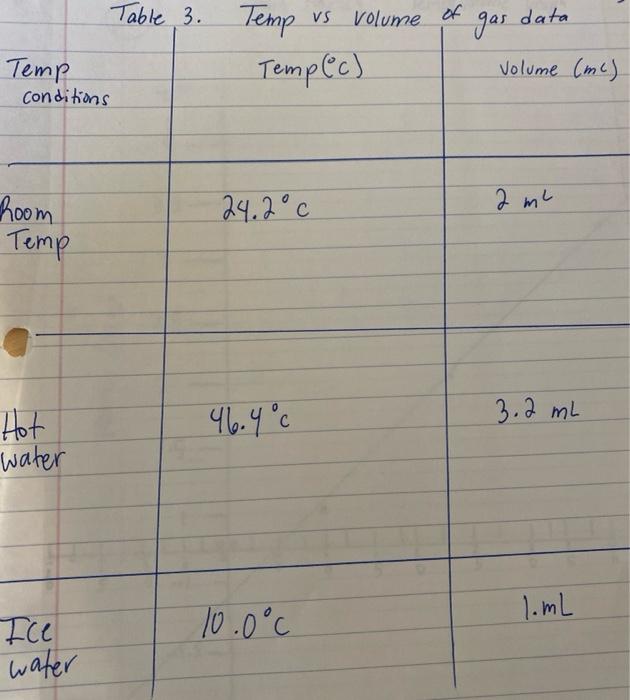 Table 3. Temp vs volume of gas data
Temp Temp(°C) Volume (mL)
conditions
Room 24.2°C 2 mL
Temp
Hot 46.4°C 3.2 mL
water
Ice 10.0°C 1.mL
water